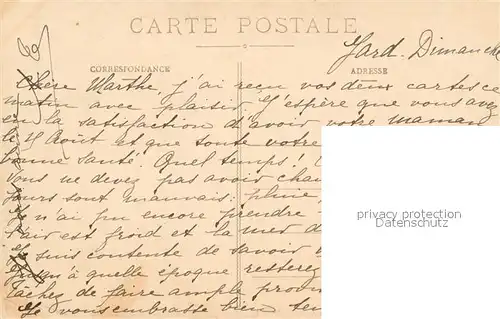 CARTE POSTALE
CORRESPONDANCE
ADRESSE
Jard. Dimanche
Chère Marthe, j'ai reçu vos deux cartes ce
matin avec plaisir. J'espère que vous avez
eu la satisfaction d'avoir votre maman
le 15 Août et que toute votre
bonne santé. Quel temps!
Vous ne devez pas avoir chaud
jours sont mauvais: pluie,
Je n'ai pu encore prendre
l'air est froid et la mer
Je suis contente de savoir
jusqu'à quelle époque resterez
Tâchez de faire ample
Je vous embrasse bien
privacy protection
www.ansichtskartenversand.com